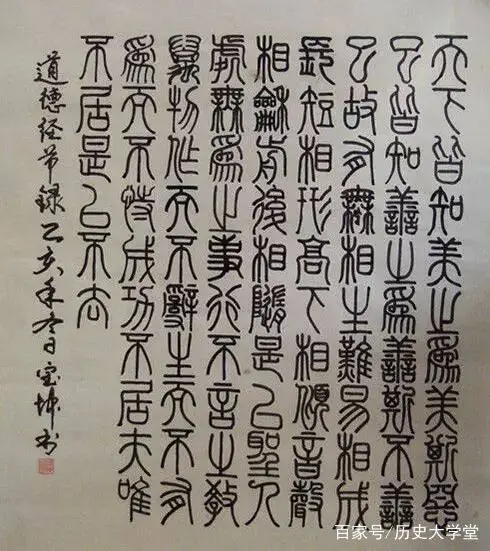 天下皆知美之為美斯惡
已皆知善之為善斯不善
已故有無相生難易相成
長短相形高下相傾音聲
相龢前後相隨是以聖人
處無為之事行不言之教
萬物作而不辭生而不有
為而不恃成功不居夫唯
不居是以不去
道德經节録乙亥年冬日宝坤书
百家号/历史大学堂